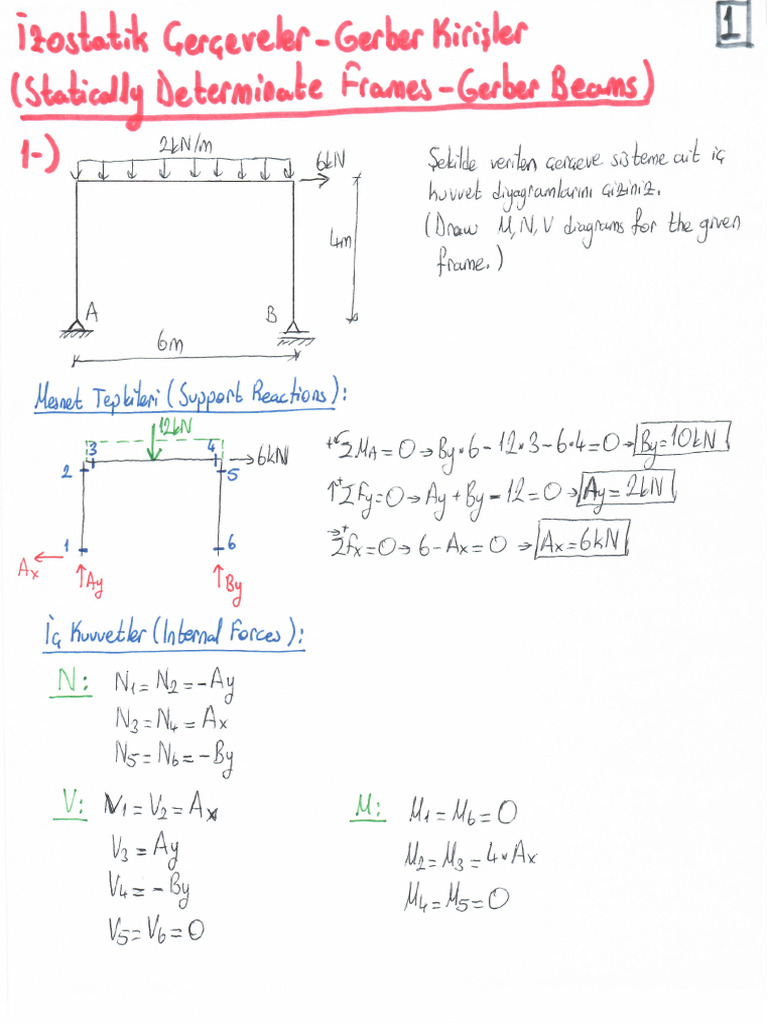 İzostatik Çerçeveler-Gerber Kirişler
1
(Statically Determinate Frames-Gerber Beams)
1-)
2kN/m
6kN
4m
A
B
6m
Şekilde verilen çerçeve sisteme ait iç
kuvvet diyagramlarını çiziniz.
(Draw M,N,V diagrams for the given
frame.)
Mesnet Tepkileri (Support Reactions):
12kN
3
4
6kN
2
5
1
6
Ax
Ay
By
+ΣMA=0→By*6-12*3-6*4=0→By=10kN
↑+ΣFy=0→Ay+By-12=0→Ay=2kN
→+ΣFx=0→6-Ax=0→Ax=6kN
İç Kuvvetler (Internal Forces):
N: N1=N2=-Ay
N3=N4=Ax
N5=N6=-By
V: V1=V2=Ax
V3=Ay
V4=-By
V5=V6=0
M: M1=M6=0
M2=M3=4*Ax
M4=M5=0